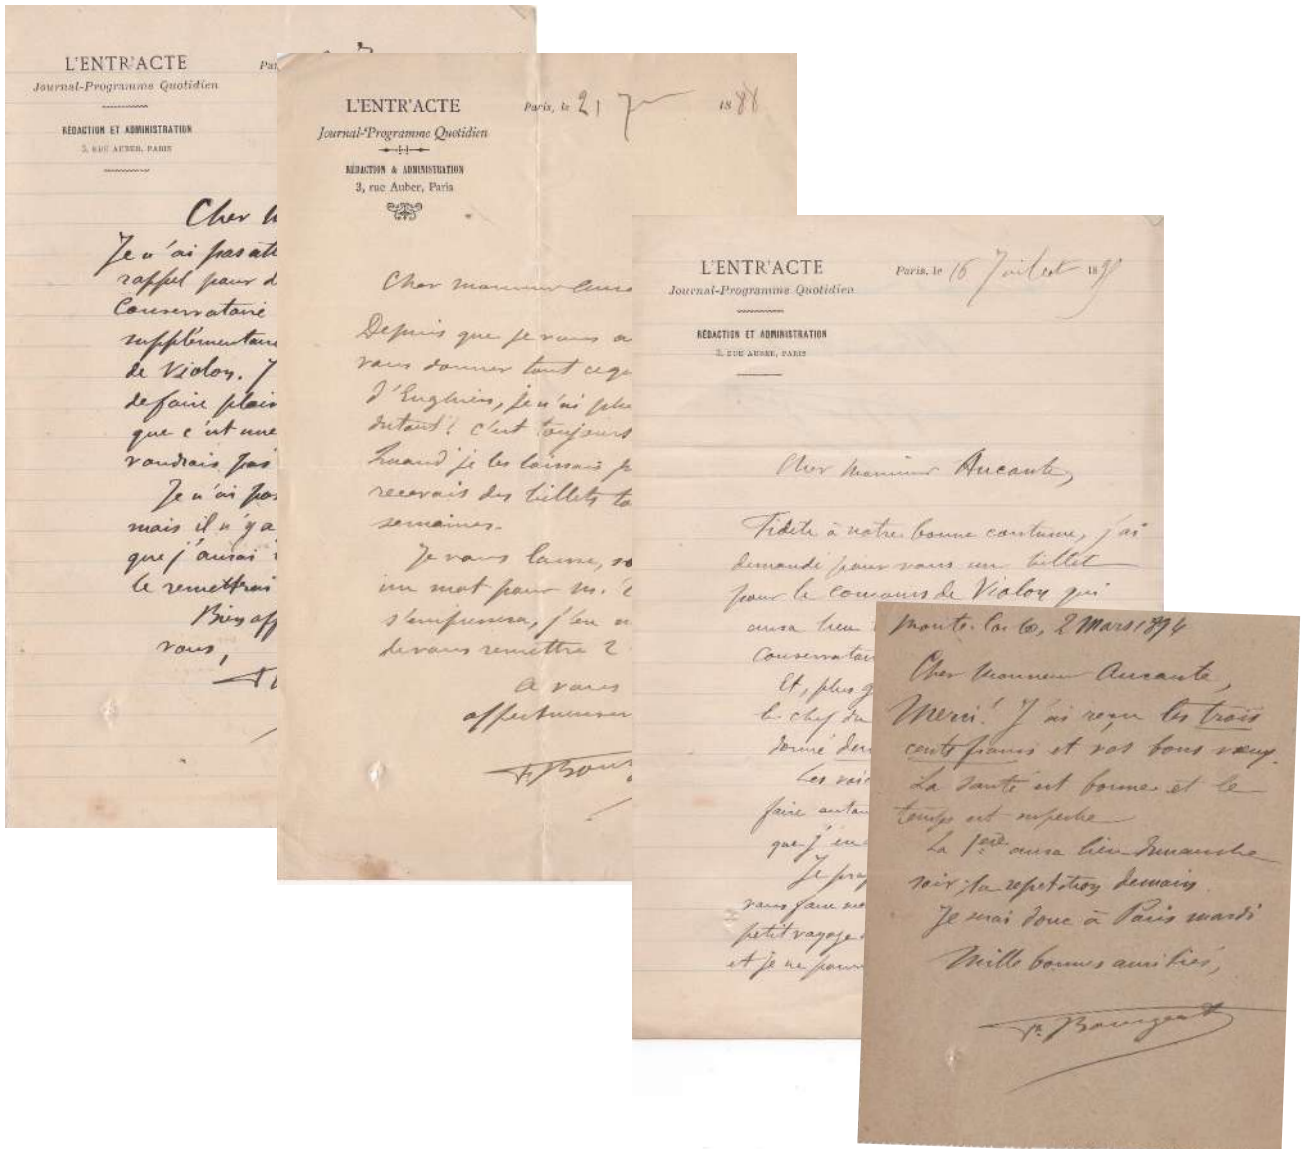 L'ENTR'ACTE
Journal-Programme Quotidien
RÉDACTION ET ADMINISTRATION
3, RUE AUBER, PARIS
Cher
Je n'ai pas
rappel pour d
Conservatoire
supplémentaire
de Violon. J
de faire plais
que c'est une
voudrais pas
Je n'ai pas
mais il n'y a
que j'aurai
le remettrai
Bien aff
vous,
L'ENTR'ACTE
Paris, le 21 1888
Journal-Programme Quotidien
RÉDACTION & ADMINISTRATION
3, rue Auber, Paris
Cher monsieur Auca
Depuis que je vous a
vous donner tout ce qu
d'Enghien, je n'ai plu
c'est toujours
Quand je les laissais p
recevais des billets to
semaines.
Je vous laisse, so
un mot pour m.
s'empressera, j'en
devons remettre 2
à vous
affectueusem
L'ENTR'ACTE
Paris, le 16 Juillet 189
Journal-Programme Quotidien
RÉDACTION ET ADMINISTRATION
3, RUE AUBER, PARIS
Cher Monsieur Aucante,
Fidèle à notre bonne coutume, j'ai
demandé pour vous un billet
pour le concours de Violon qui
aura lieu
Conservatoi
Et, plus g
le chef du
donné deu
Les voic
faire autan
que j'en
Je prof
vous faire
petit voyage
et je ne pourr
Monte Carlo, 2 Mars 1894
Cher Monsieur Aucante,
Merci! J'ai reçu les trois
cents francs et vos bons vœux.
La santé est bonne et le
temps est superbe
La 1ère aura lieu dimanche
soir; la répétition demain.
Je serai donc à Paris mardi
Mille bonnes amitiés,